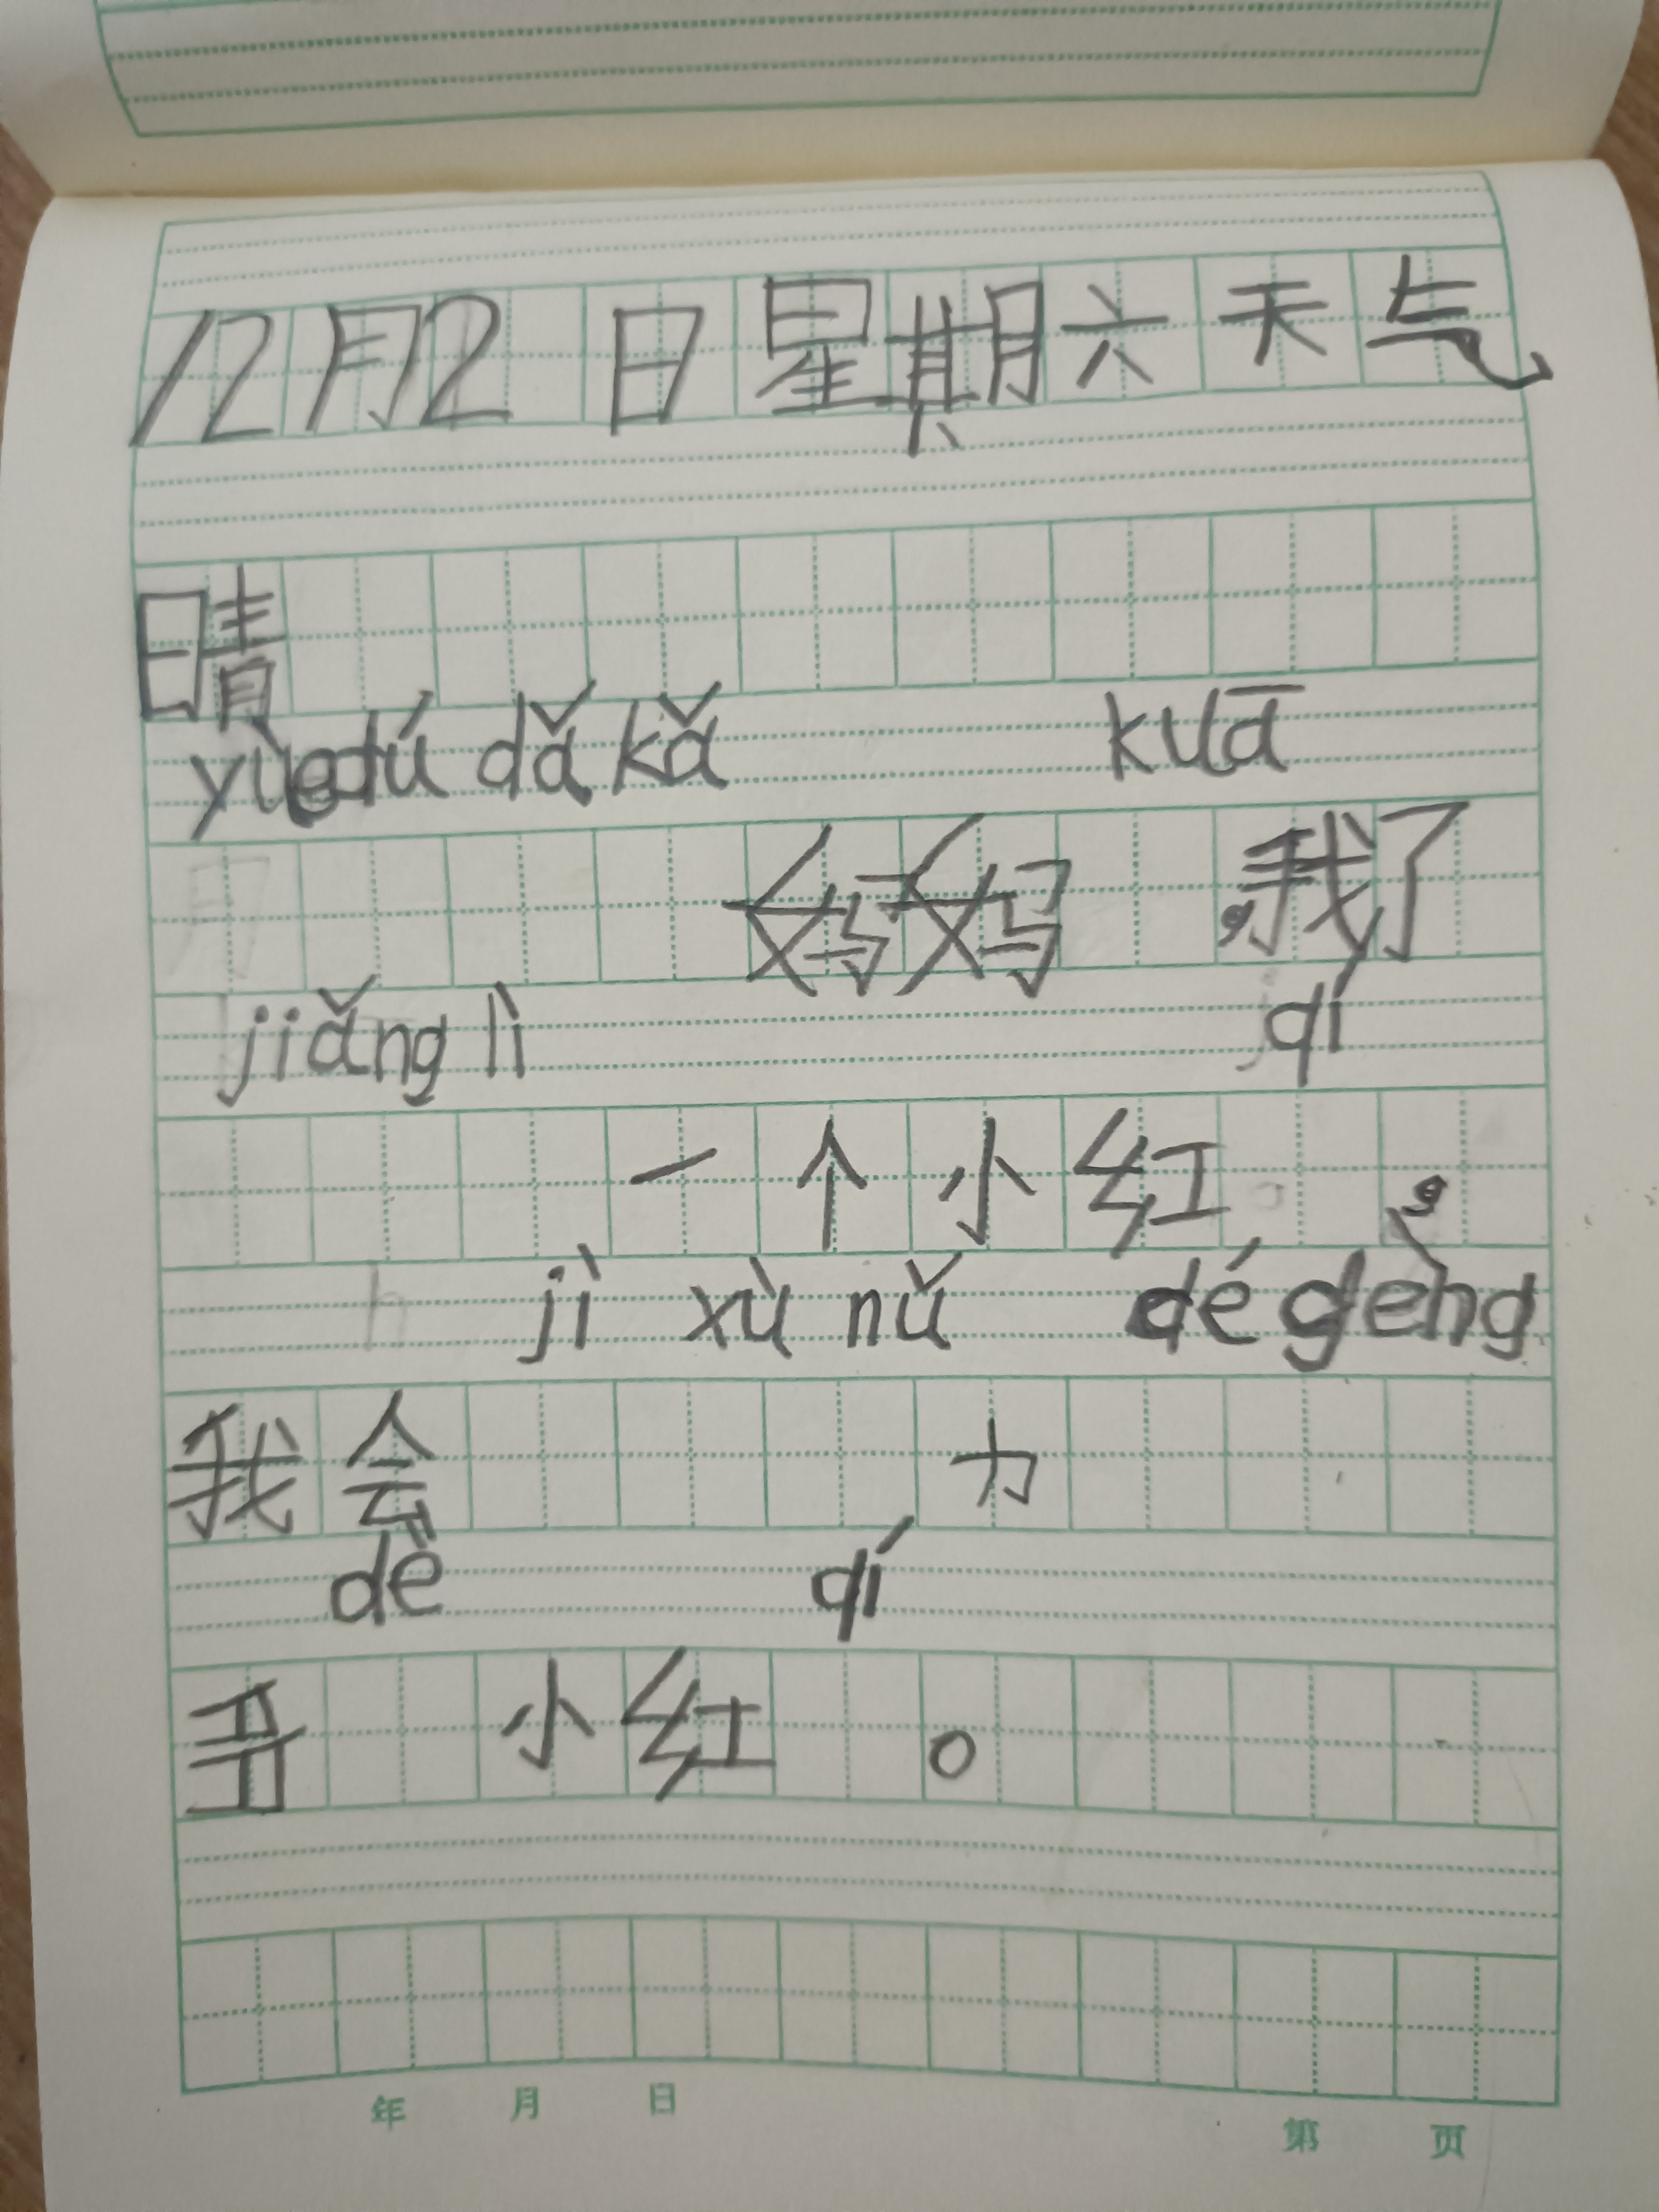 12月2日星期六天气
晴
yuèdú dǎ kǎ kuā
妈妈,我了
jiǎng lì qí
一个小红,
jì xù nǔ dé gèng
我会力
dè qí
多小红。
年 月 日 第 页